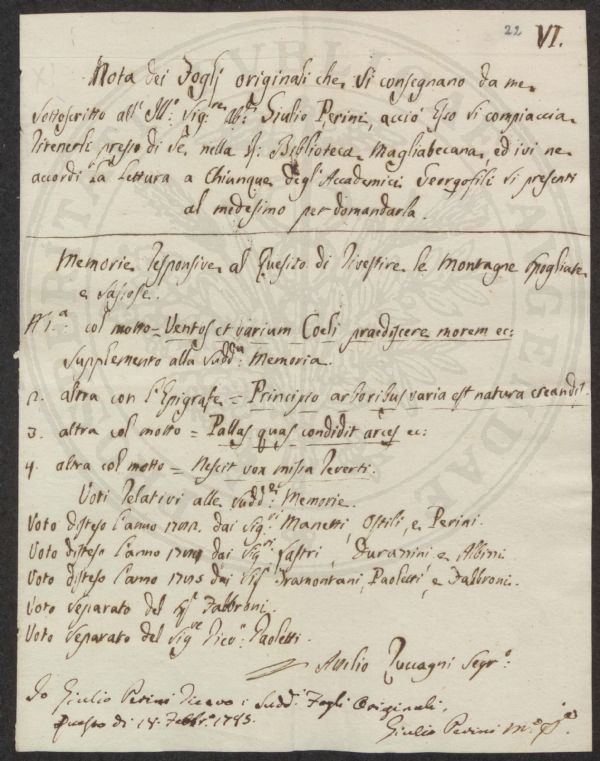 22 VI.
Nota dei Foglj originali che si consegnano da me
sottoscritto all' Ill.º Sig.re Ab.e Giulio Perini, acciò Esso si compiaccia
ritenerli presso di se, nella Biblioteca Magliabecana, ed ivi ne
accordi la lettura a Chiunque degl'Accademici Georgofili si presenti
al medesimo per domandarla.
Memorie responsive al Quesito di rivestire le Montagne spogliate
e sassose.
N 1.a: col motto = Ventos et varium Coeli praediscere morem ec:
Supplemento alla sudd.a Memoria.
2. altra con l'Epigrafe = Principio arboribus varia est natura creandis.
3. altra col motto = Pallas quas condidit arces ec:
4. altra col motto = Nescit vox missa reverti.
Voti relativi alle sudd.e Memorie.
Voto disteso l'anno dai Sig.ri Manetti, Ostili, e Perini.
Voto disteso l'anno dai Sig.ri Lastri, e Albini
Voto disteso l'anno dai Sig.ri Tramontani, Paoletti, e Fabbroni.
Voto separato del Sig.r Fabbroni.
Voto separato del Sig.re Paoletti.
Attilio Zuccagni Segr.º:
Io Giulio Perini ricevo i sudd.i Fogli Originali,
questo dì 18. Febbr.º 1785.
Giulio Perini